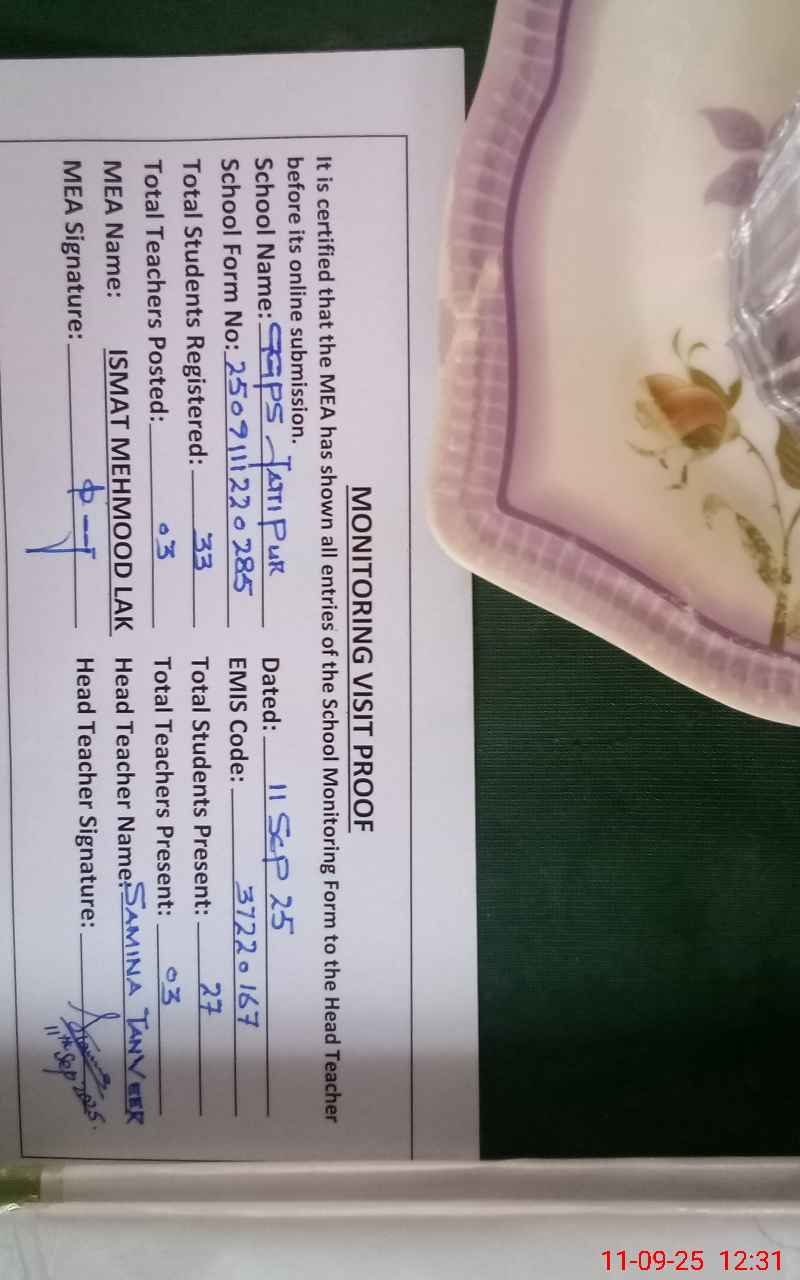 MONITORING VISIT PROOF
It is certified that the MEA has shown all entries of the School Monitoring Form to the Head Teacher
before its online submission.
School Name: GGPS JATTIPUR Dated: 11 SEP 25
School Form No: 250911122 0285 EMIS Code: 37220167
Total Students Registered: 33 Total Students Present: 27
Total Teachers Posted: 03 Total Teachers Present: 03
MEA Name: ISMAT MEHMOOD LAK Head Teacher Name: SAMINA TANVEER
MEA Signature: Head Teacher Signature:
11th Sep 2025.
11-09-25 12:31